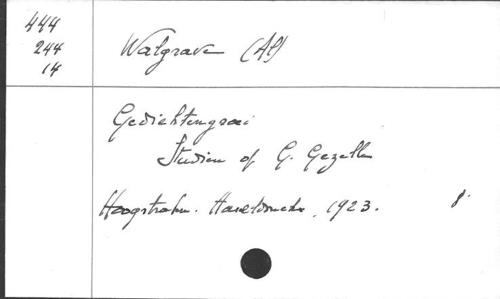 444
244
14
Walgrave (Al)
Gedichtengroei
Studien of G. Gezelle
Hoogstraten. Haseldonckx, 1923.
8.